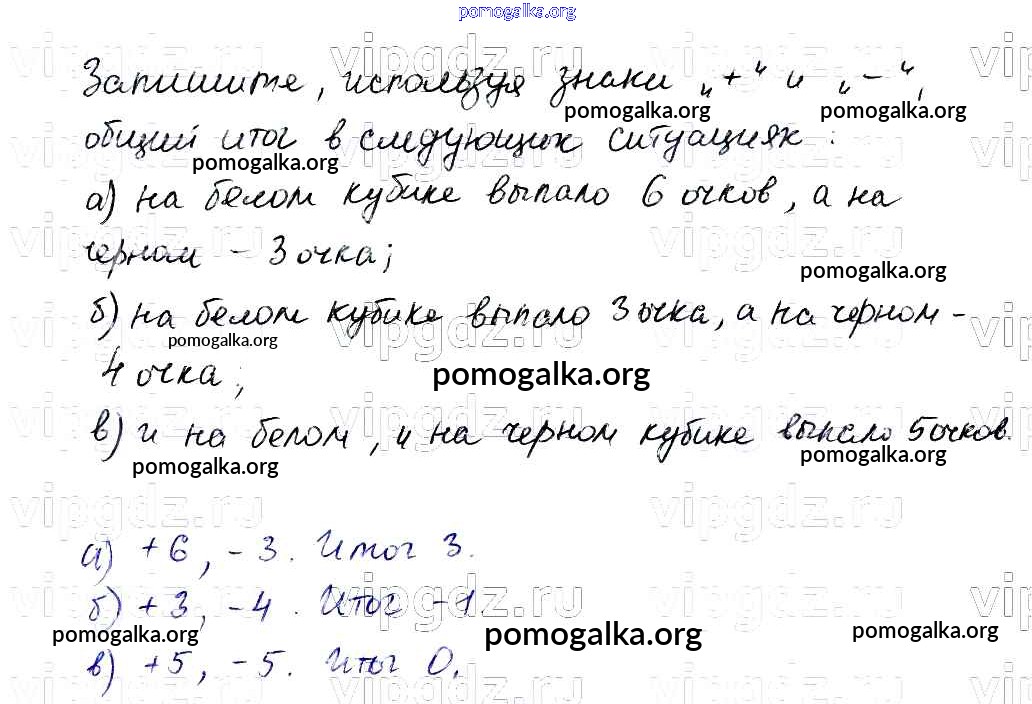 pomogalka.org
vipgdz.ru vipgdz.ru vipgdz.ru
Запишите, используя знаки „+“ и „-“,
pomogalka.org pomogalka.org
общий итог в следующих ситуациях:
pomogalka.org
а) на белом кубике выпало 6 очков, а на
черном - 3 очка;
pomogalka.org
б) на белом кубике выпало 3 очка, а на черном -
pomogalka.org
4 очка;
pomogalka.org
в) и на белом, и на черном кубике выпало 5 очков.
pomogalka.org pomogalka.org
vipgdz.ru vipgdz.ru vipgdz.ru
а) +6, -3. Итог 3.
б) +3, -4. Итог -1.
pomogalka.org pomogalka.org pomogalka.org
в) +5, -5. Итог 0.